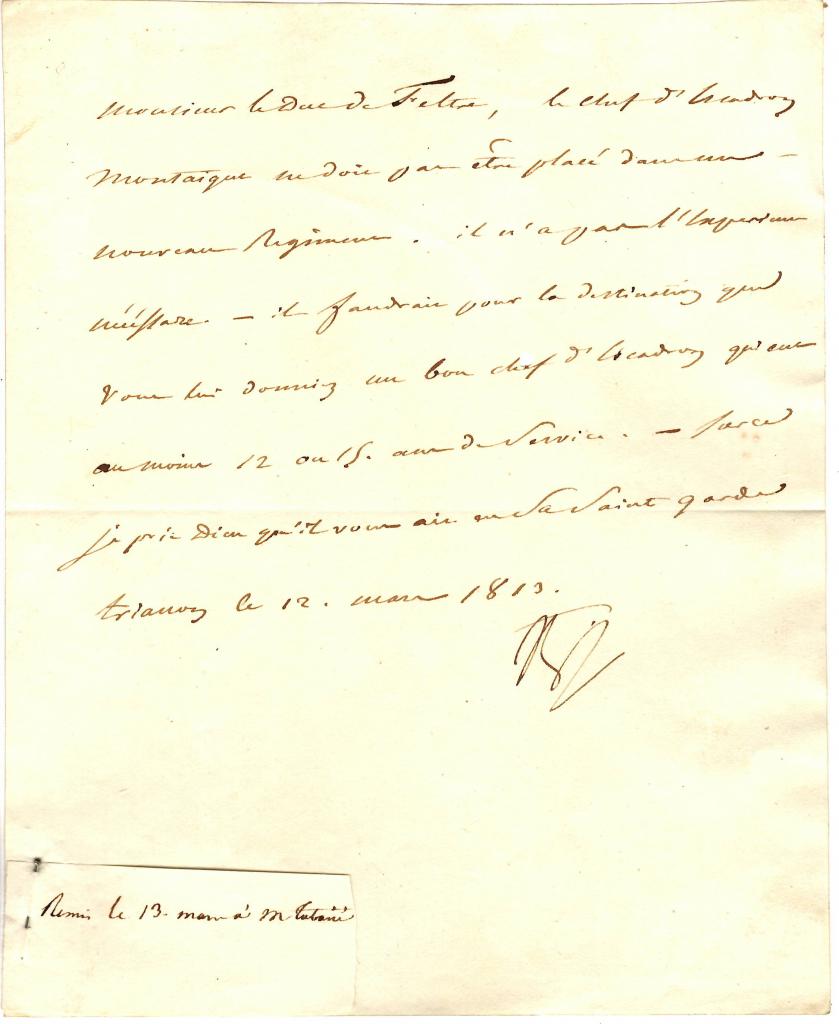 Monsieur le Duc de Feltre, le chef d'Escadron
Montaigu ne doit pas être placé dans un –
nouveau Régiment. il n'a pas l'Experience
nécéssaire. – il faudrait pour la destination que
vous lui donniez un bon chef d'Escadron qui eut
au moins 12 ou 15. ans de Service. – sur ce
je prie Dieu qu'il vous ait en Sa Sainte garde
trianon le 12. mars 1813.
Np
Remis le 13. mars à M.